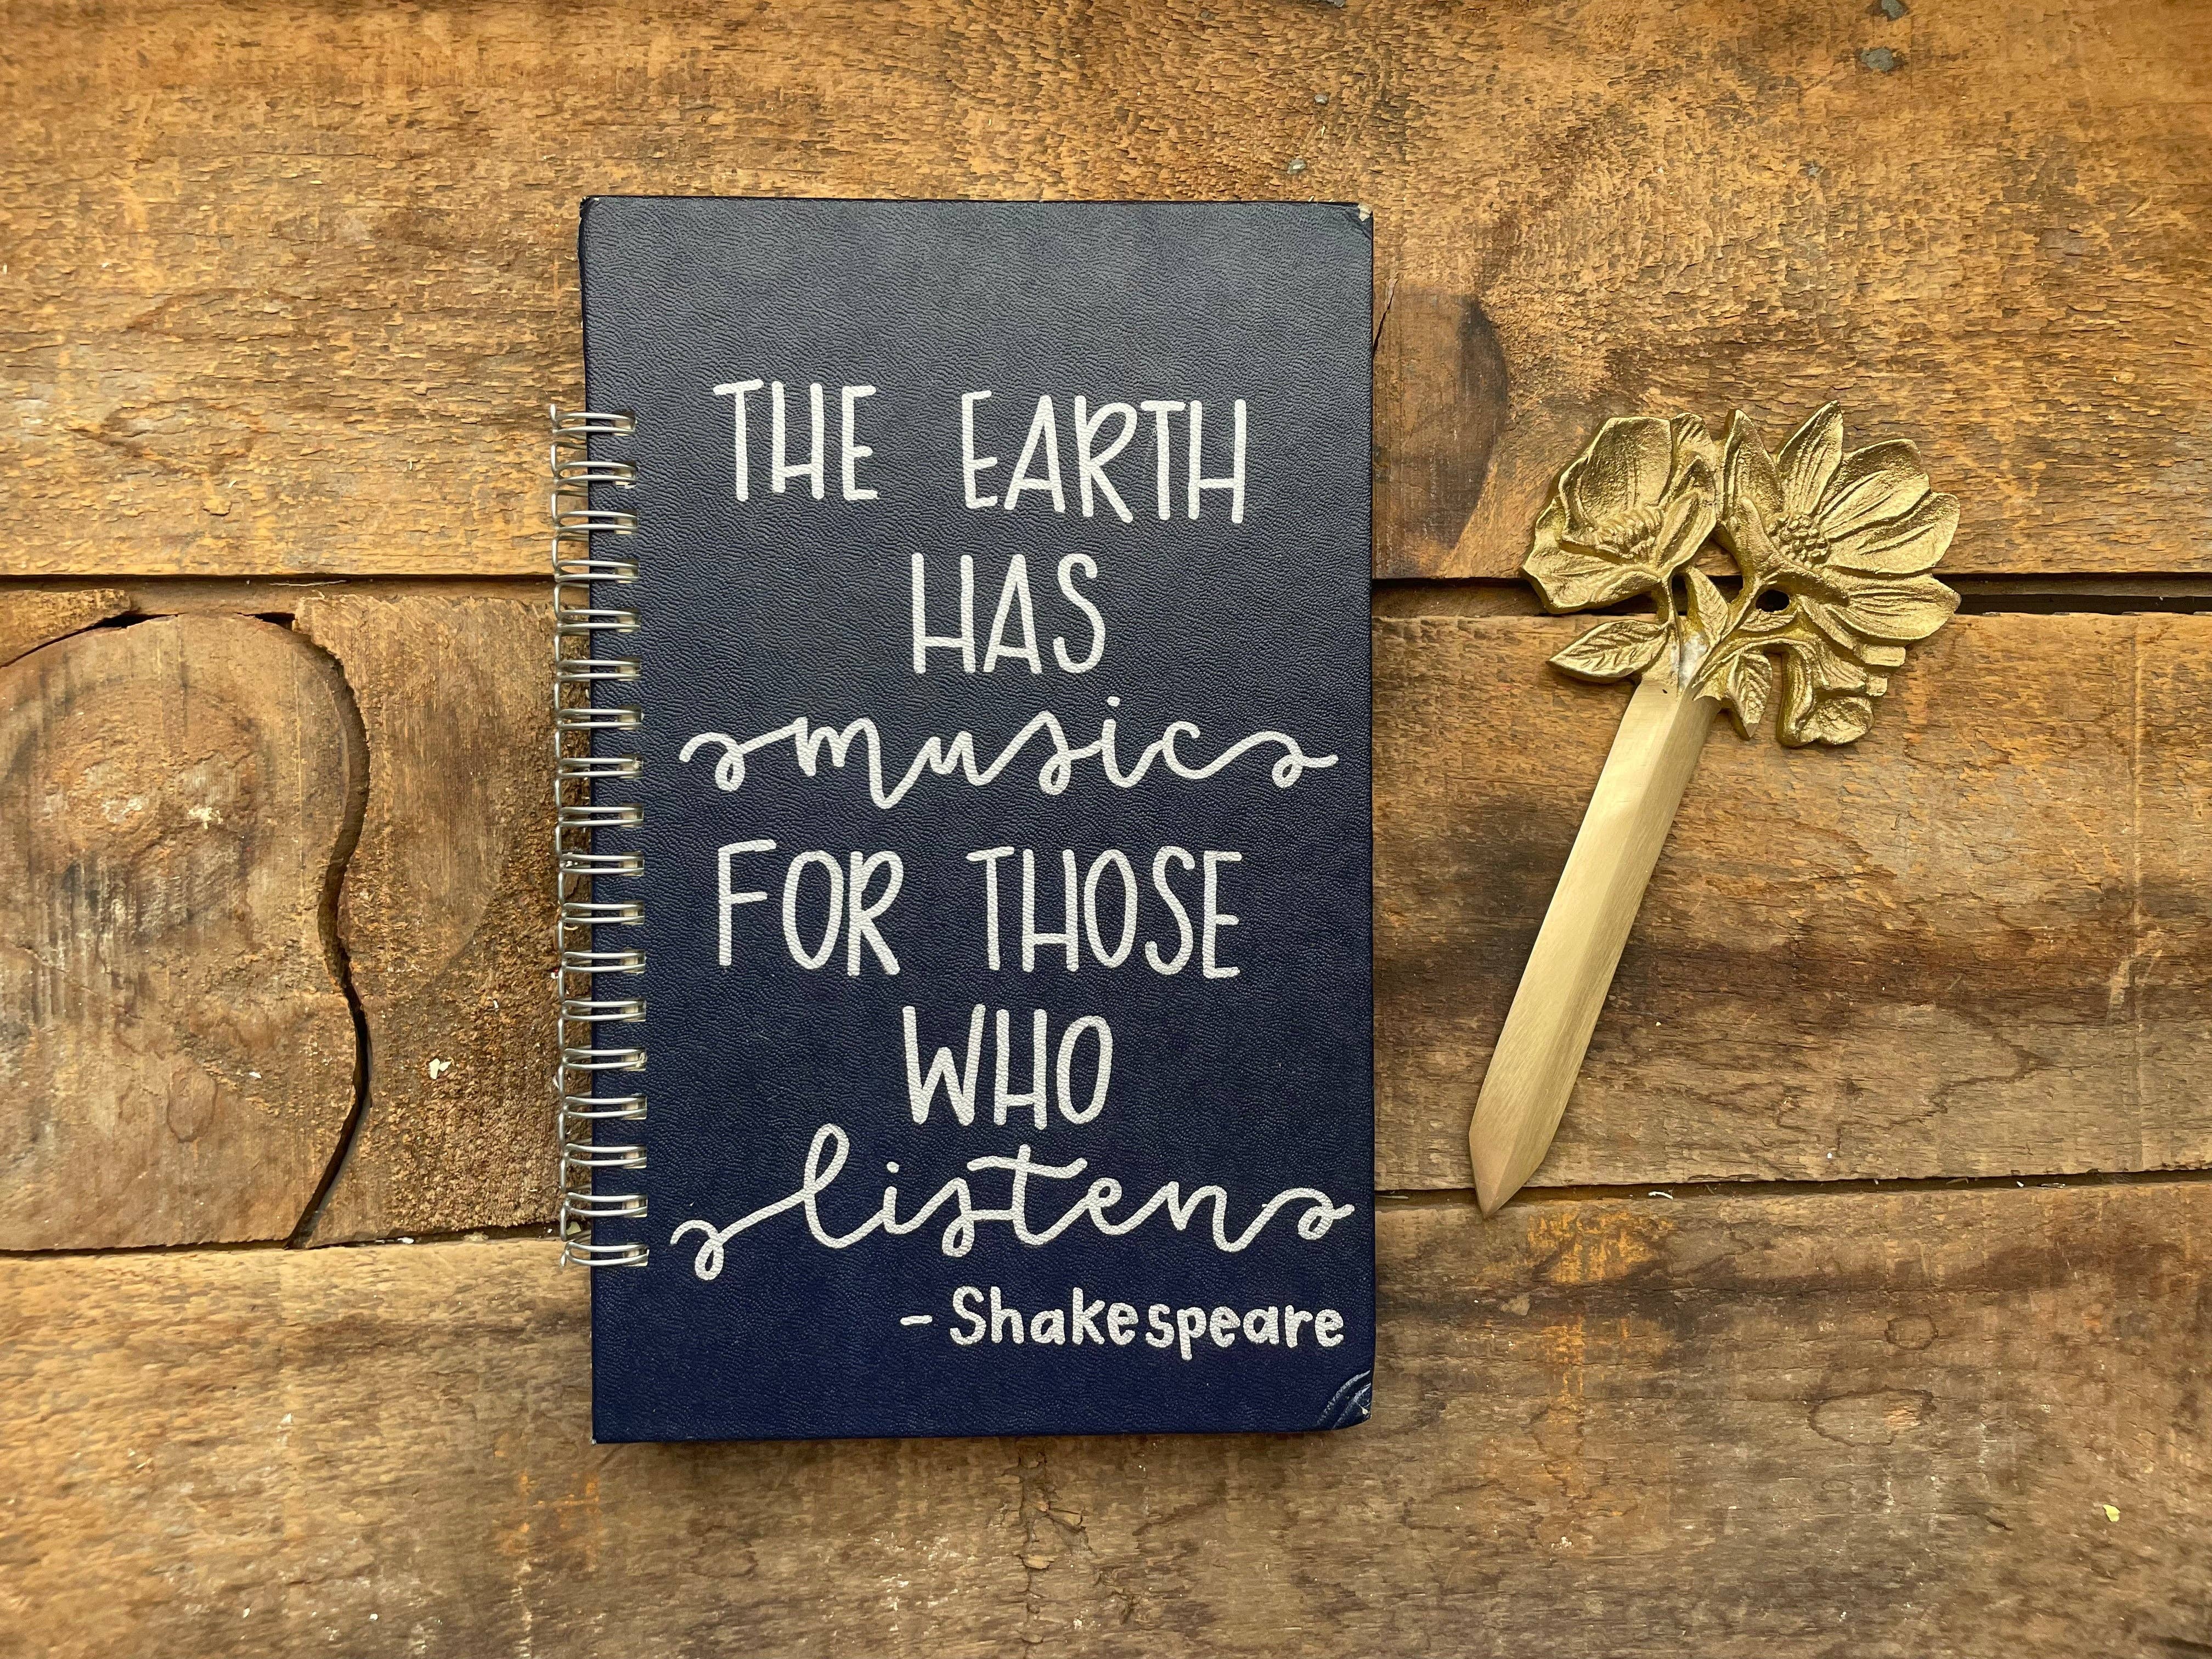 THE EARTH
HAS
music
FOR THOSE
WHO
listen
- Shakespeare